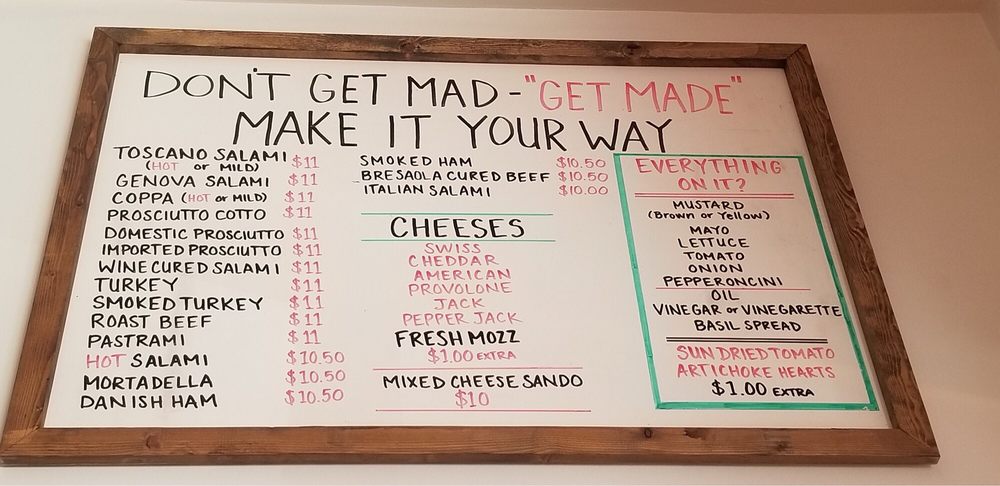 DON'T GET MAD - "GET MADE"
MAKE IT YOUR WAY
TOSCANO SALAMI $11
(HOT or MILD)
GENOVA SALAMI $11
COPPA (HOT or MILD) $11
PROSCIUTTO COTTO $11
DOMESTIC PROSCIUTTO $11
IMPORTED PROSCIUTTO $11
WINE CURED SALAMI $11
TURKEY $11
SMOKED TURKEY $11
ROAST BEEF $11
PASTRAMI $11
HOT SALAMI $10.50
MORTADELLA $10.50
DANISH HAM $10.50
SMOKED HAM $10.50
BRESAOLA CURED BEEF $10.50
ITALIAN SALAMI $10.00
CHEESES
SWISS
CHEDDAR
AMERICAN
PROVOLONE
JACK
PEPPER JACK
FRESH MOZZ
$1.00 EXTRA
MIXED CHEESE SANDO
$10
EVERYTHING
ON IT?
MUSTARD
(Brown or Yellow)
MAYO
LETTUCE
TOMATO
ONION
PEPPERONCINI
OIL
VINEGAR or VINEGARETTE
BASIL SPREAD
SUN DRIED TOMATO
ARTICHOKE HEARTS
$1.00 EXTRA